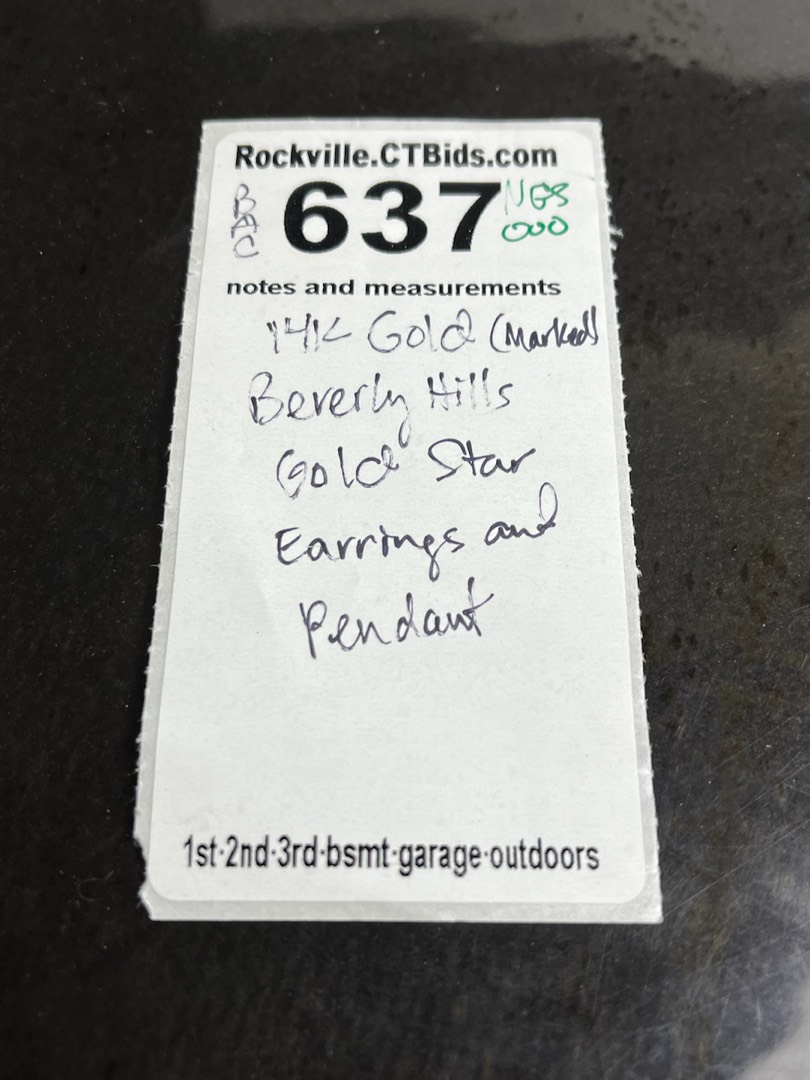 Rockville.CTBids.com
BAC
637
NGS
000
notes and measurements
14K Gold (Marked)
Beverly Hills
Gold Star
Earrings and
Pendant
1st·2nd·3rd·bsmt·garage·outdoors